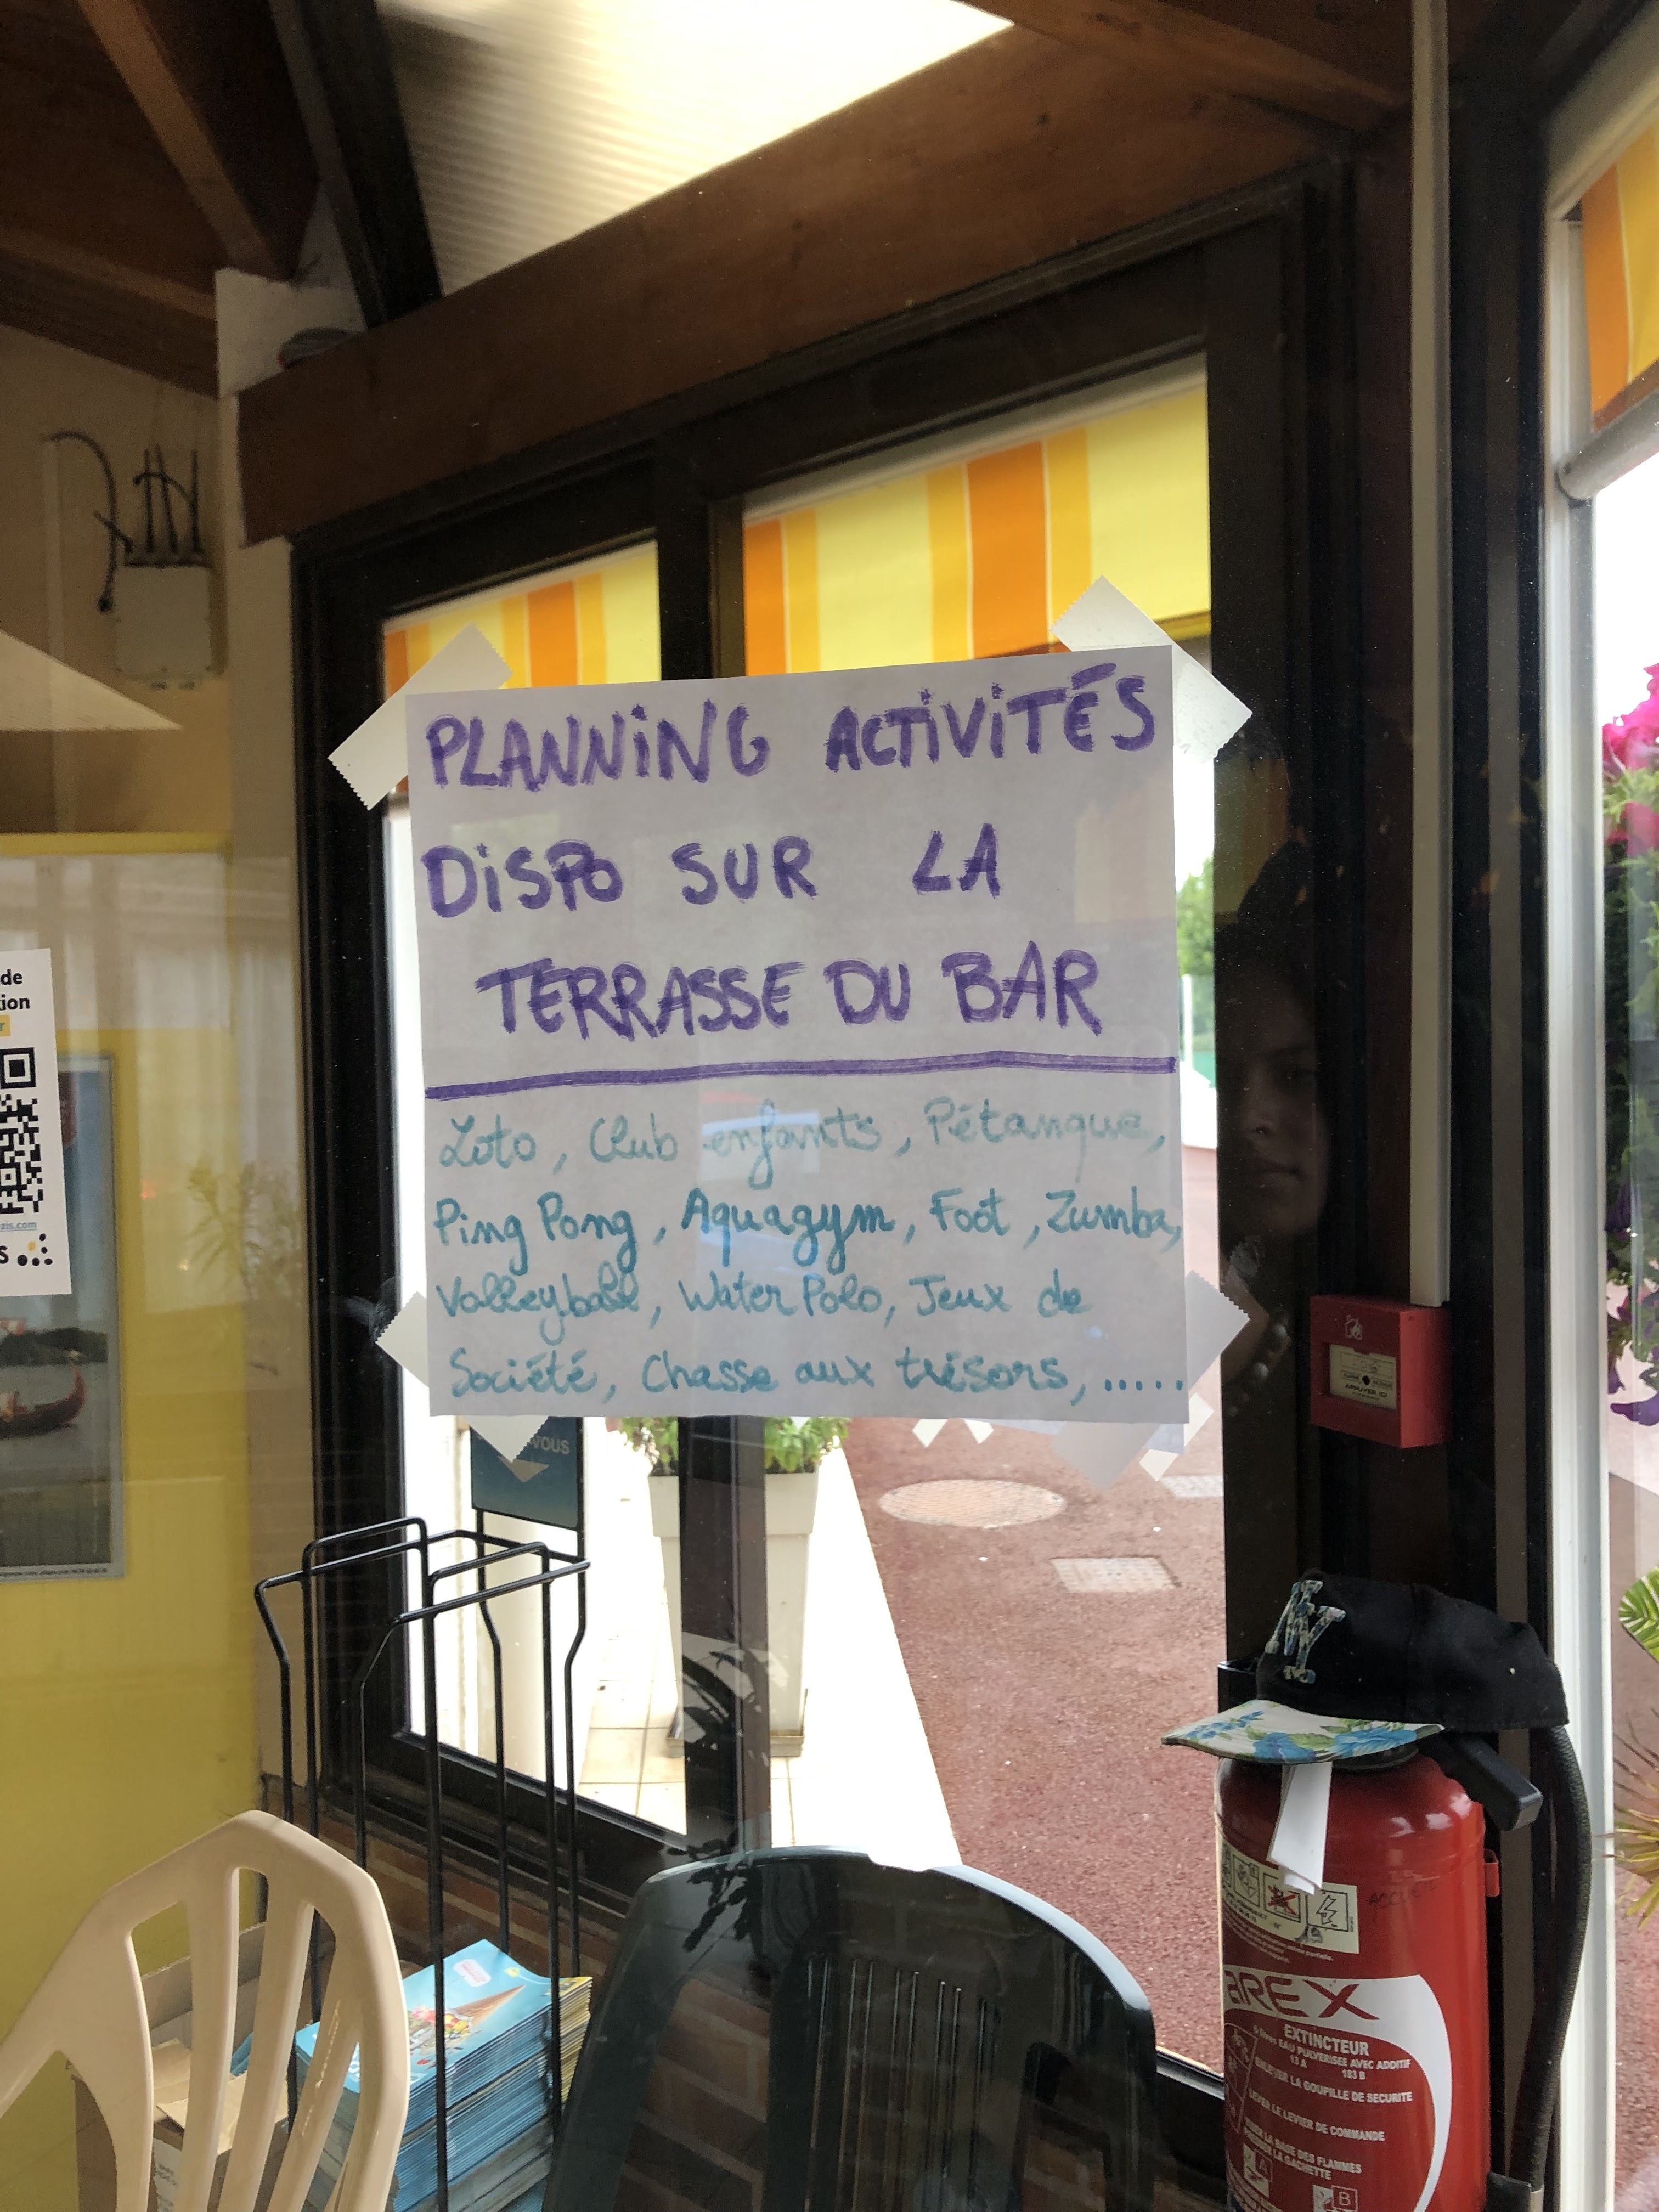 PLANNING ACTIVITÉS
DISPO SUR LA
TERRASSE DU BAR
Loto, Club enfants, Pétanque,
Ping Pong, Aquagym, Foot, Zumba,
Volleyball, Water Polo, Jeux de
Société, Chasse aux trésors, .....
de
VOUS
NY
ACCUEIL
AREX
EXTINCTEUR
EAU PULVERISEE AVEC ADDITIF
13 A
183 B
ENLEVER LA GOUPILLE DE SECURITE
LEVER LE LEVIER DE COMMANDE
VISER LA BASE DES FLAMMES
LA GACHETTE
A
B